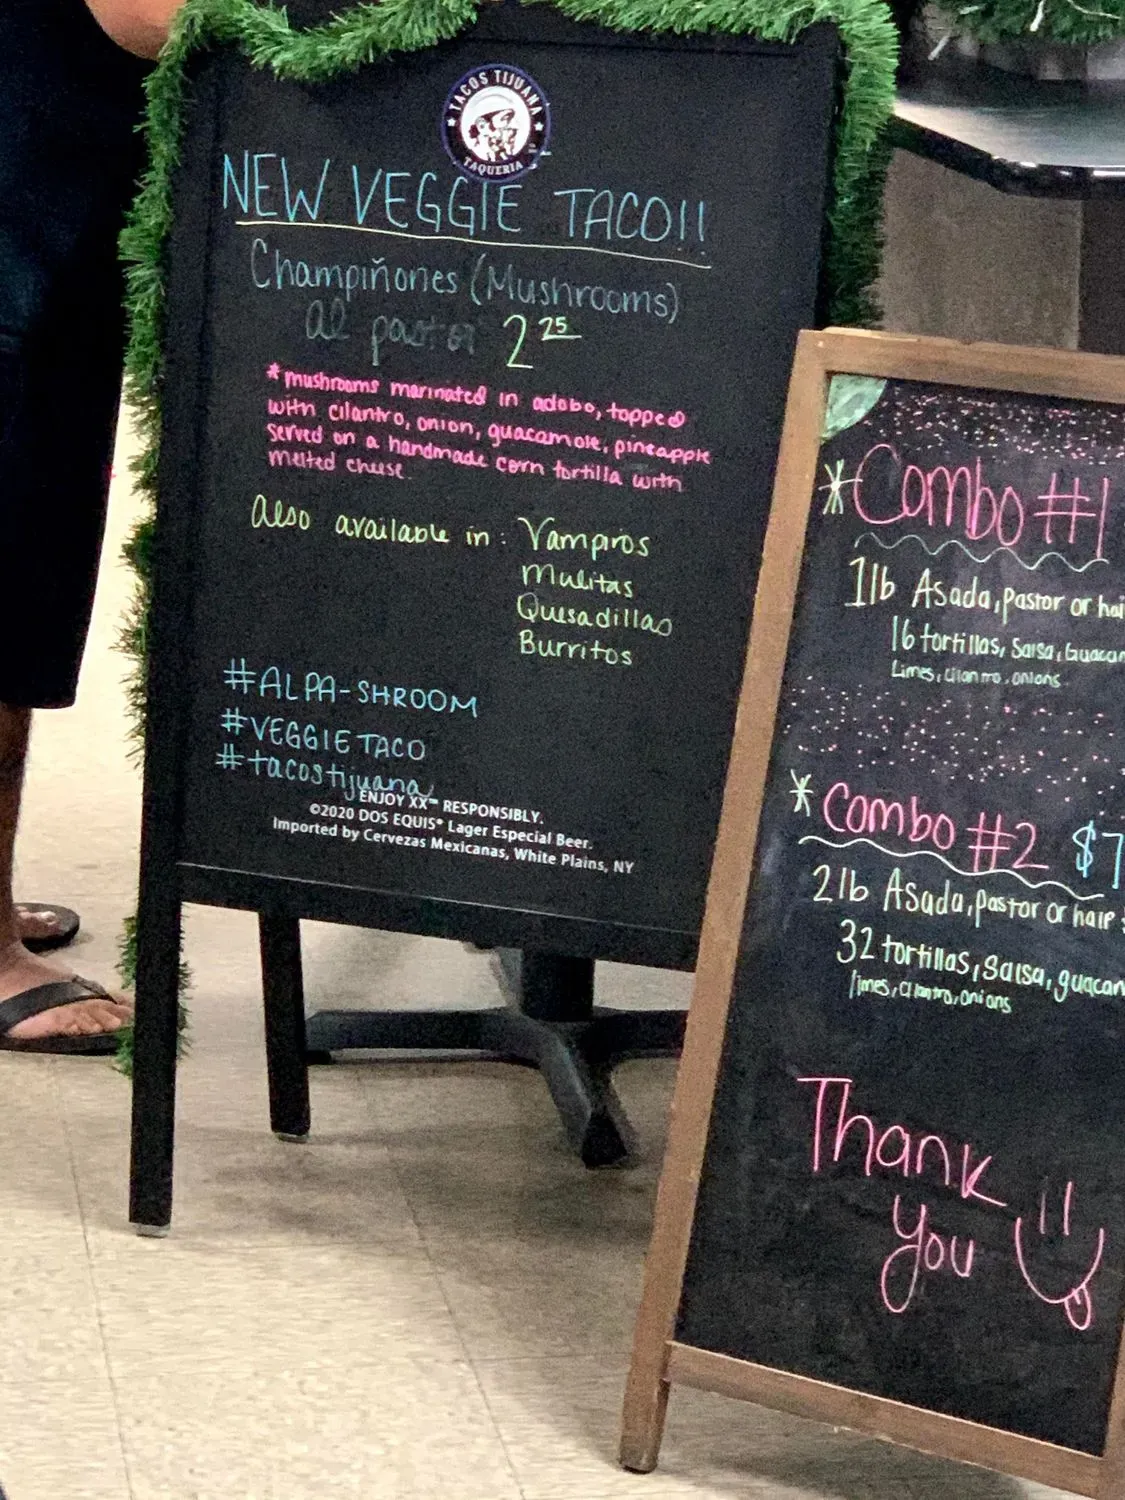 TACOS TIJUANA
TAQUERIA
NEW VEGGIE TACO!!
Champiñones (Mushrooms)
al pastor 2 25
*mushrooms marinated in adobo, topped
with cilantro, onion, guacamole, pineapple
served on a handmade corn tortilla with
melted cheese.
Also available in: Vampiros
Mulitas
Quesadillas
Burritos
#ALPA-SHROOM
#VEGGIETACO
#tacostijuana
ENJOY XX™ RESPONSIBLY.
©2020 DOS EQUIS® Lager Especial Beer.
Imported by Cervezas Mexicanas, White Plains, NY
*Combo #1
1lb Asada, pastor or hal
16 tortillas, Salsa, Guacam
Limes, cilantro, onions
*Combo #2 $7
2lb Asada, pastor or half
32 tortillas, salsa, guacam
limes, cilantro, onions
Thank
you